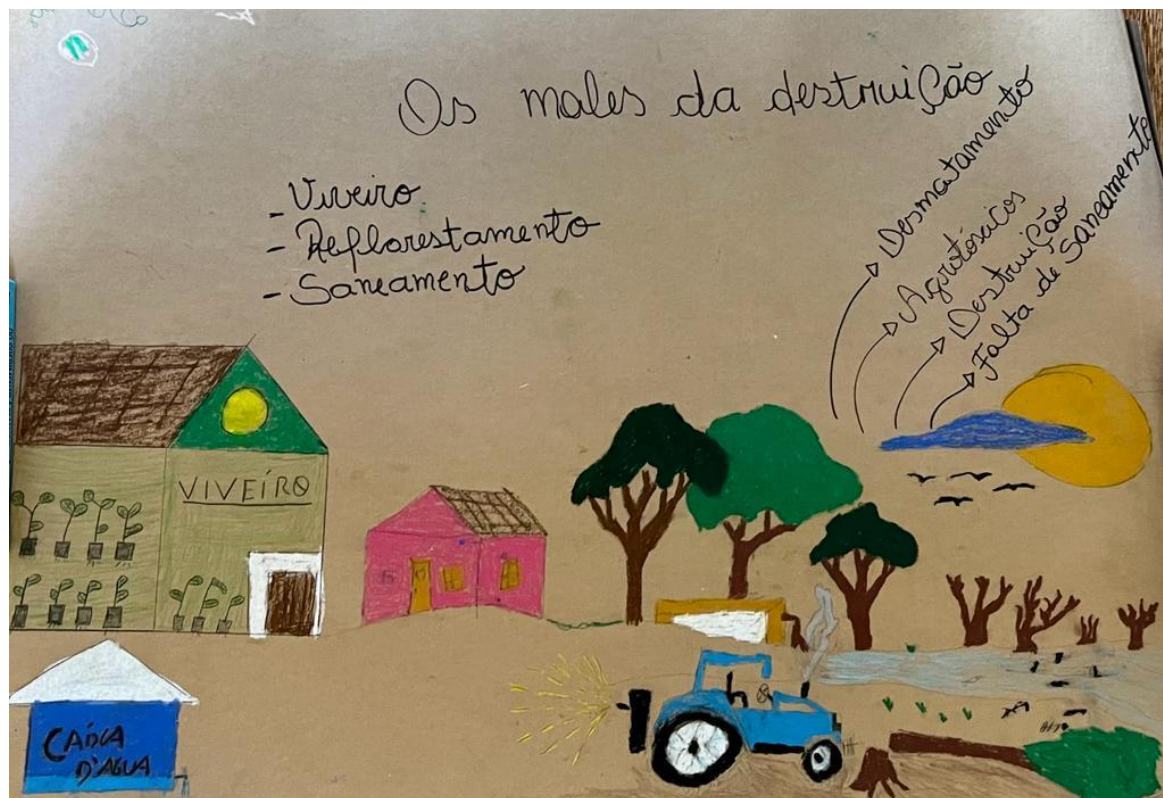 Os males da destruição
- Viveiro
- Reflorestamento
- Saneamento
Desmatamento
Agrotóxicos
Destruição
Falta de Saneamente
VIVEÍRO
CAÍXA
D'AGUA